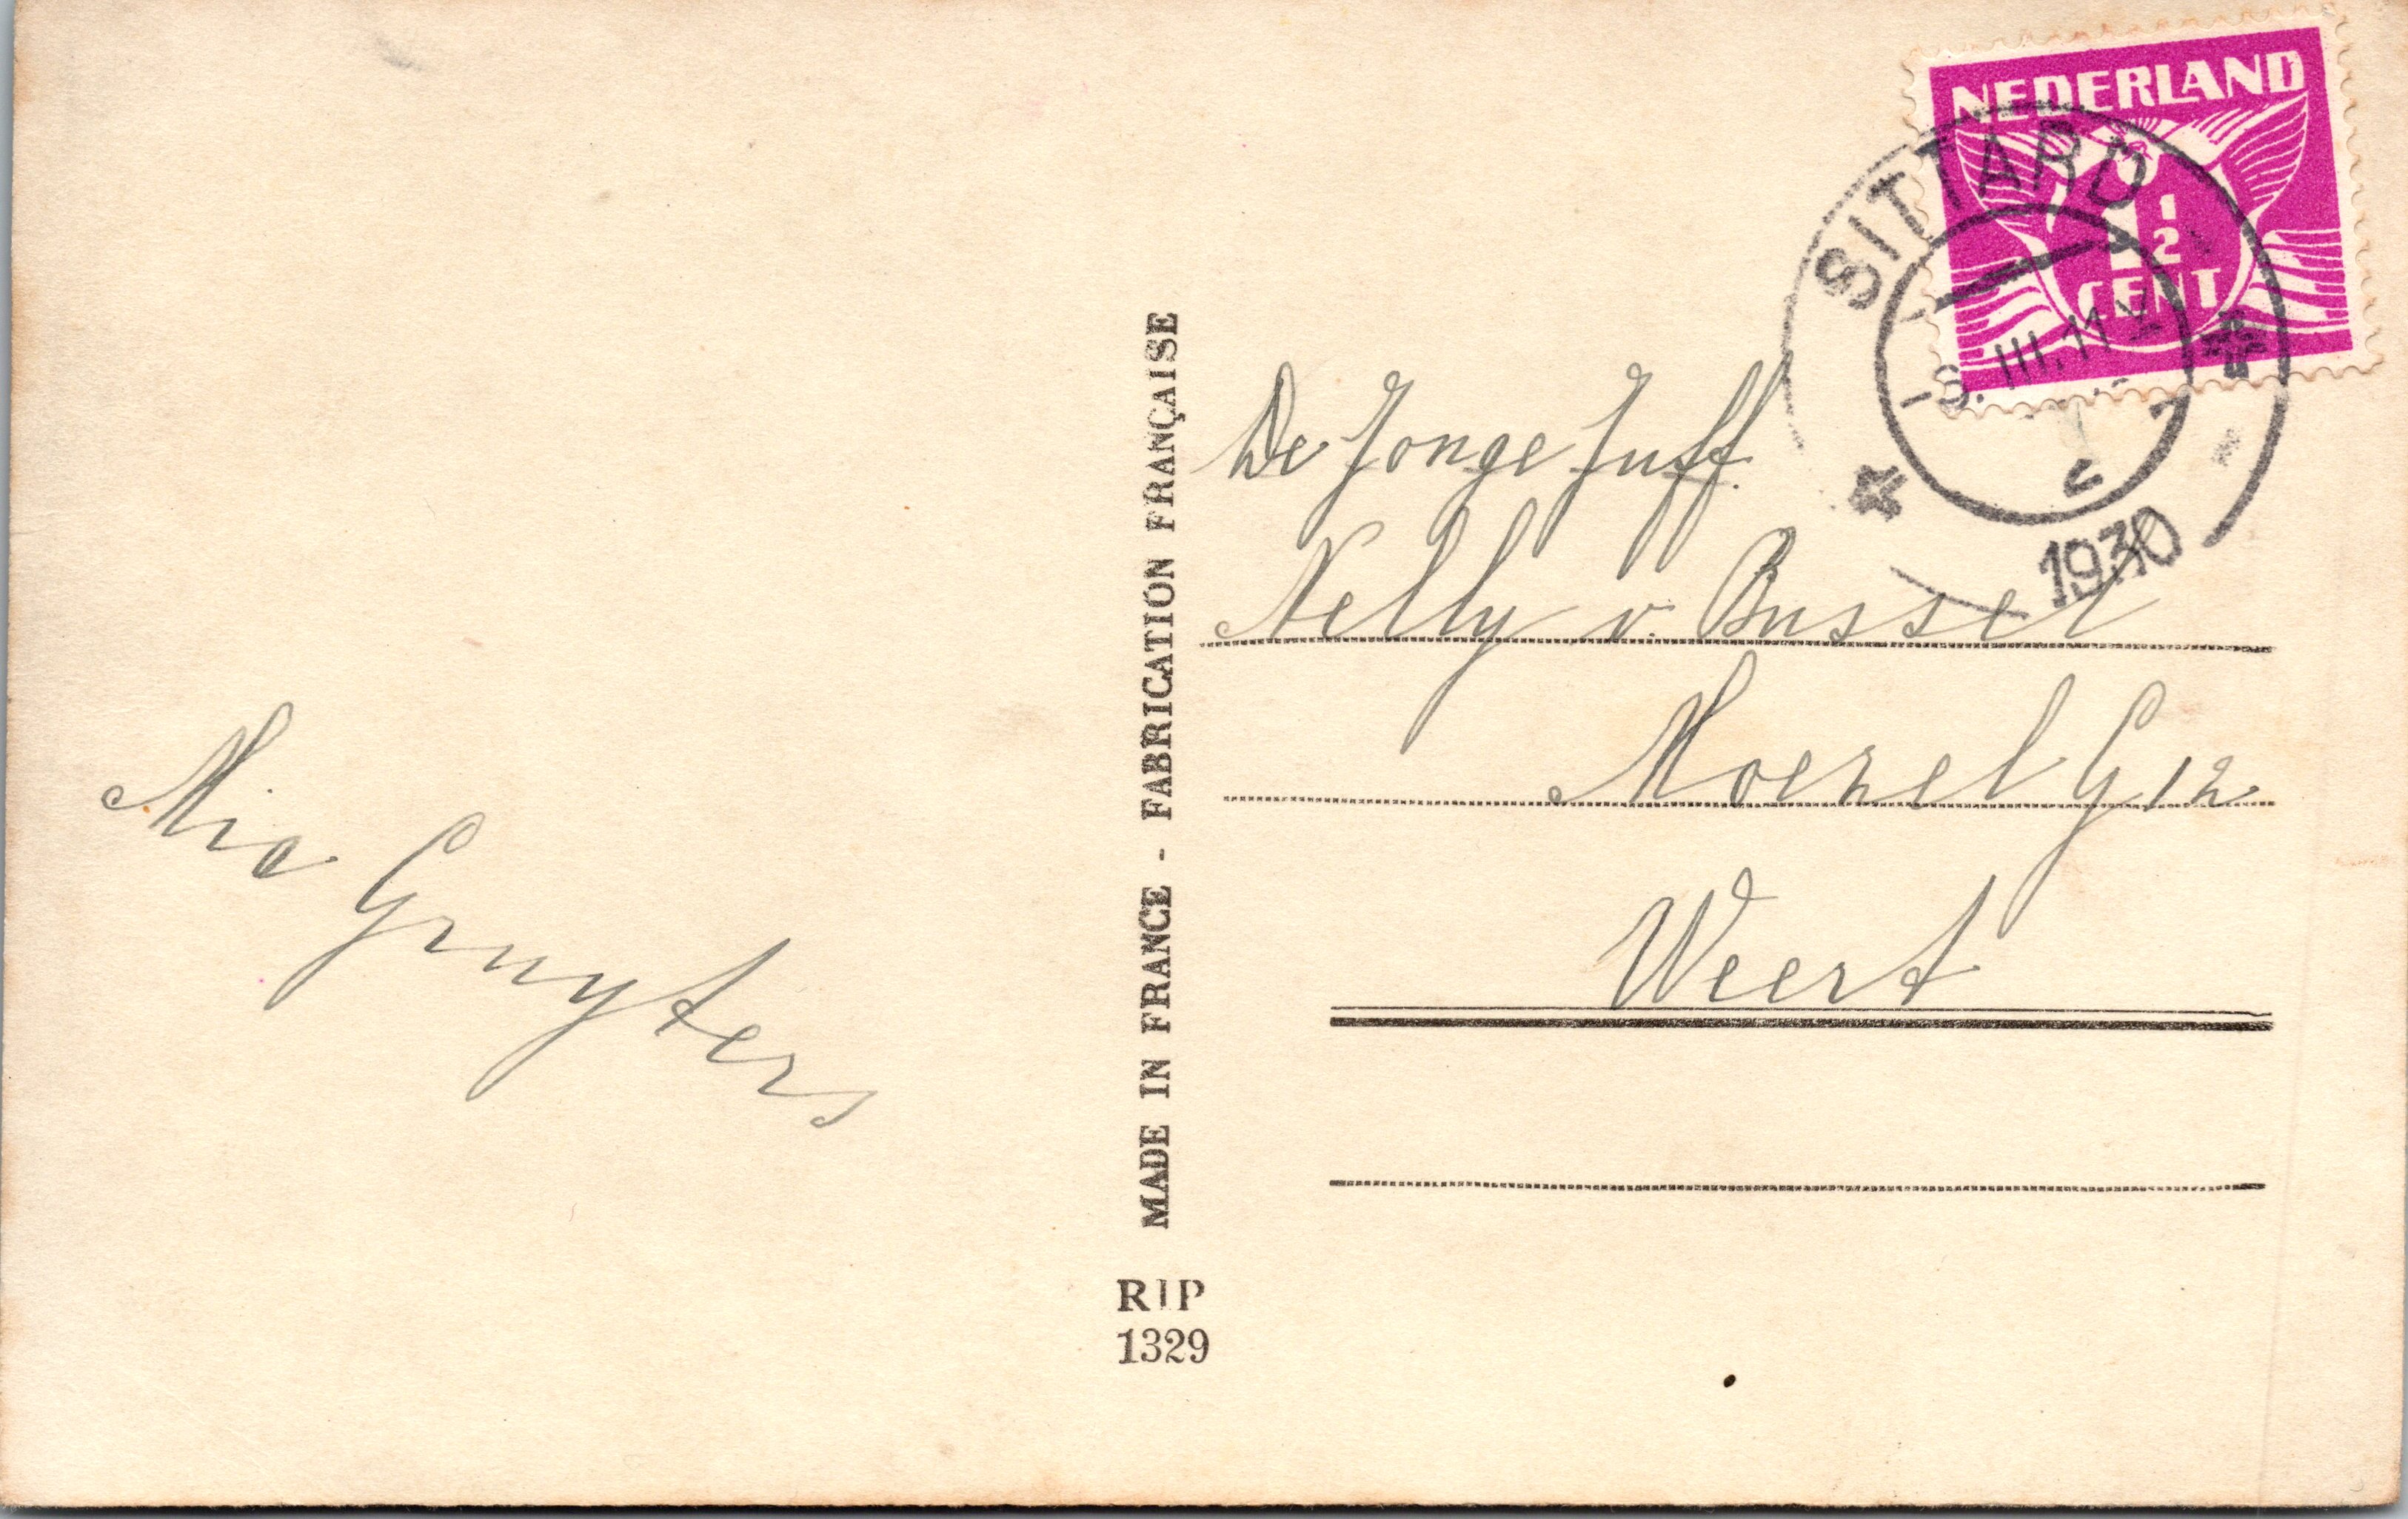 NEDERLAND
1 1/2
CENT
SITTARD
1930
De Jonge Juff.
Nelly v. Bussel
Moezel G 12
Weert
Mia Gruyters
MADE IN FRANCE - FABRICATION FRANÇAISE
RIP
1329